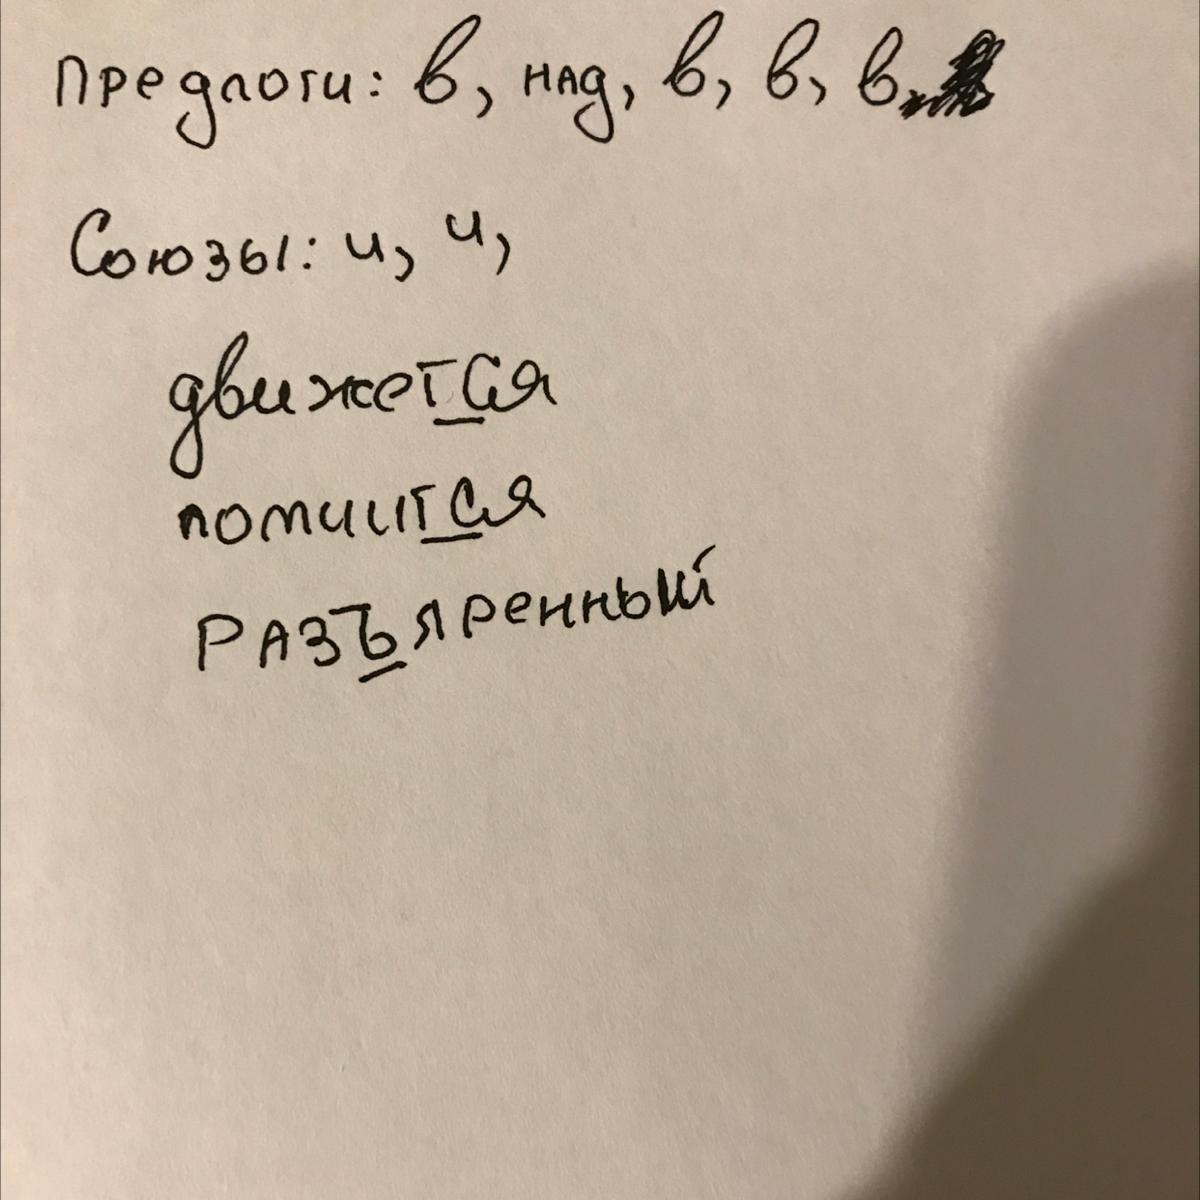 Предлоги: в, над, в, в, в
Союзы: и, и,
движется
помчится
РАЗЪяренный